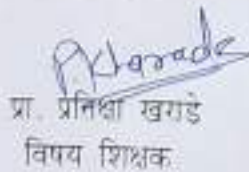 PKharade
प्रा. प्रतिक्षा खराडे
विषय शिक्षक